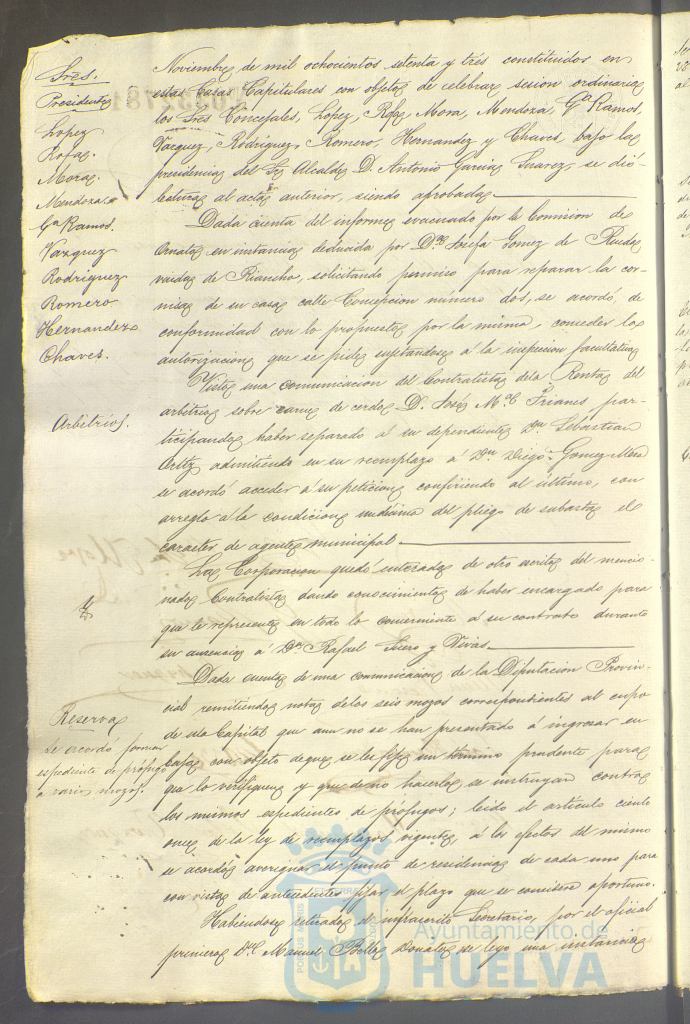 Sres.
Presidente
Lopez
Rofa.
Mora.
Mendoza.
Ga Ramos.
Vazquez
Rodriguez
Romero
Hernandez
Chaves.
Noviembre de mil ochocientos setenta y tres constituidos en
estas Casas Capitulares con objeto de celebrar sesion ordinaria
los Sres Concejales, Lopez, Rofa, Mora, Mendoza, Ga Ramos,
Vazquez, Rodriguez, Romero, Hernandez y Chaves, bajo la
presidencia del Sr Alcalde D. Antonio Garcia Suarez, se dió
lectura al acta anterior, siendo aprobada
Dada cuenta del informe evacuado por la Comision de
Ornato en instancia deducida por Da Josefa Gomez de Rueda
viuda de Riancho, solicitando permiso para reparar la cor-
nisa de su casa calle Concepcion número dos, se acordó, de
conformidad con lo propuesto por la misma, conceder la
autorizacion que se pide sujetandose á la inspeccion facultativa
Arbitrios.
Vista una comunicacion del Contratista de la Renta del
arbitrio sobre carne de cerdo D. José Ma Frianes par-
ticipando haber separado á su dependiente Dn Sebastian
Ortiz admitiendo en su reemplazo á Dn Diego Gomez Mora
se acordó acceder á su peticion confiriendo al último, con
arreglo á la condicion undécima del pliego de subasta el
caracter de agente municipal
La Corporacion quedó enterada de otro escrito del mencio-
nado Contratista dando conocimiento de haber encargado para
que le represente en todo lo concerniente á su contrato durante
su ausencia á Dn Rafael Suero y Vivas
Reserva
Se acordó formar
espediente de prófugo
a varios mozos.
Dada cuenta de una comunicacion de la Diputacion Provin-
cial remitiendo nota de los seis mozos correspondientes al cupo
de esta Capital que aun no se han presentado á ingresar en
Caja con objeto de que se les fije un término prudente para
que lo verifiquen y que de no hacerlo se instruyan contra
los mismos espedientes de prófugos; leido el artículo ciento
once de la ley de reemplazos vigente, á los efectos del mismo
se acordó averiguar el punto de residencia de cada uno para
con vista de antecedentes fijar el plazo que se considere oportuno.
Habiendose retirado el infrascrito Secretario, por el oficial
primero Dn Manuel Bello Donate se leyo una instancia
Ayuntamiento de
HUELVA